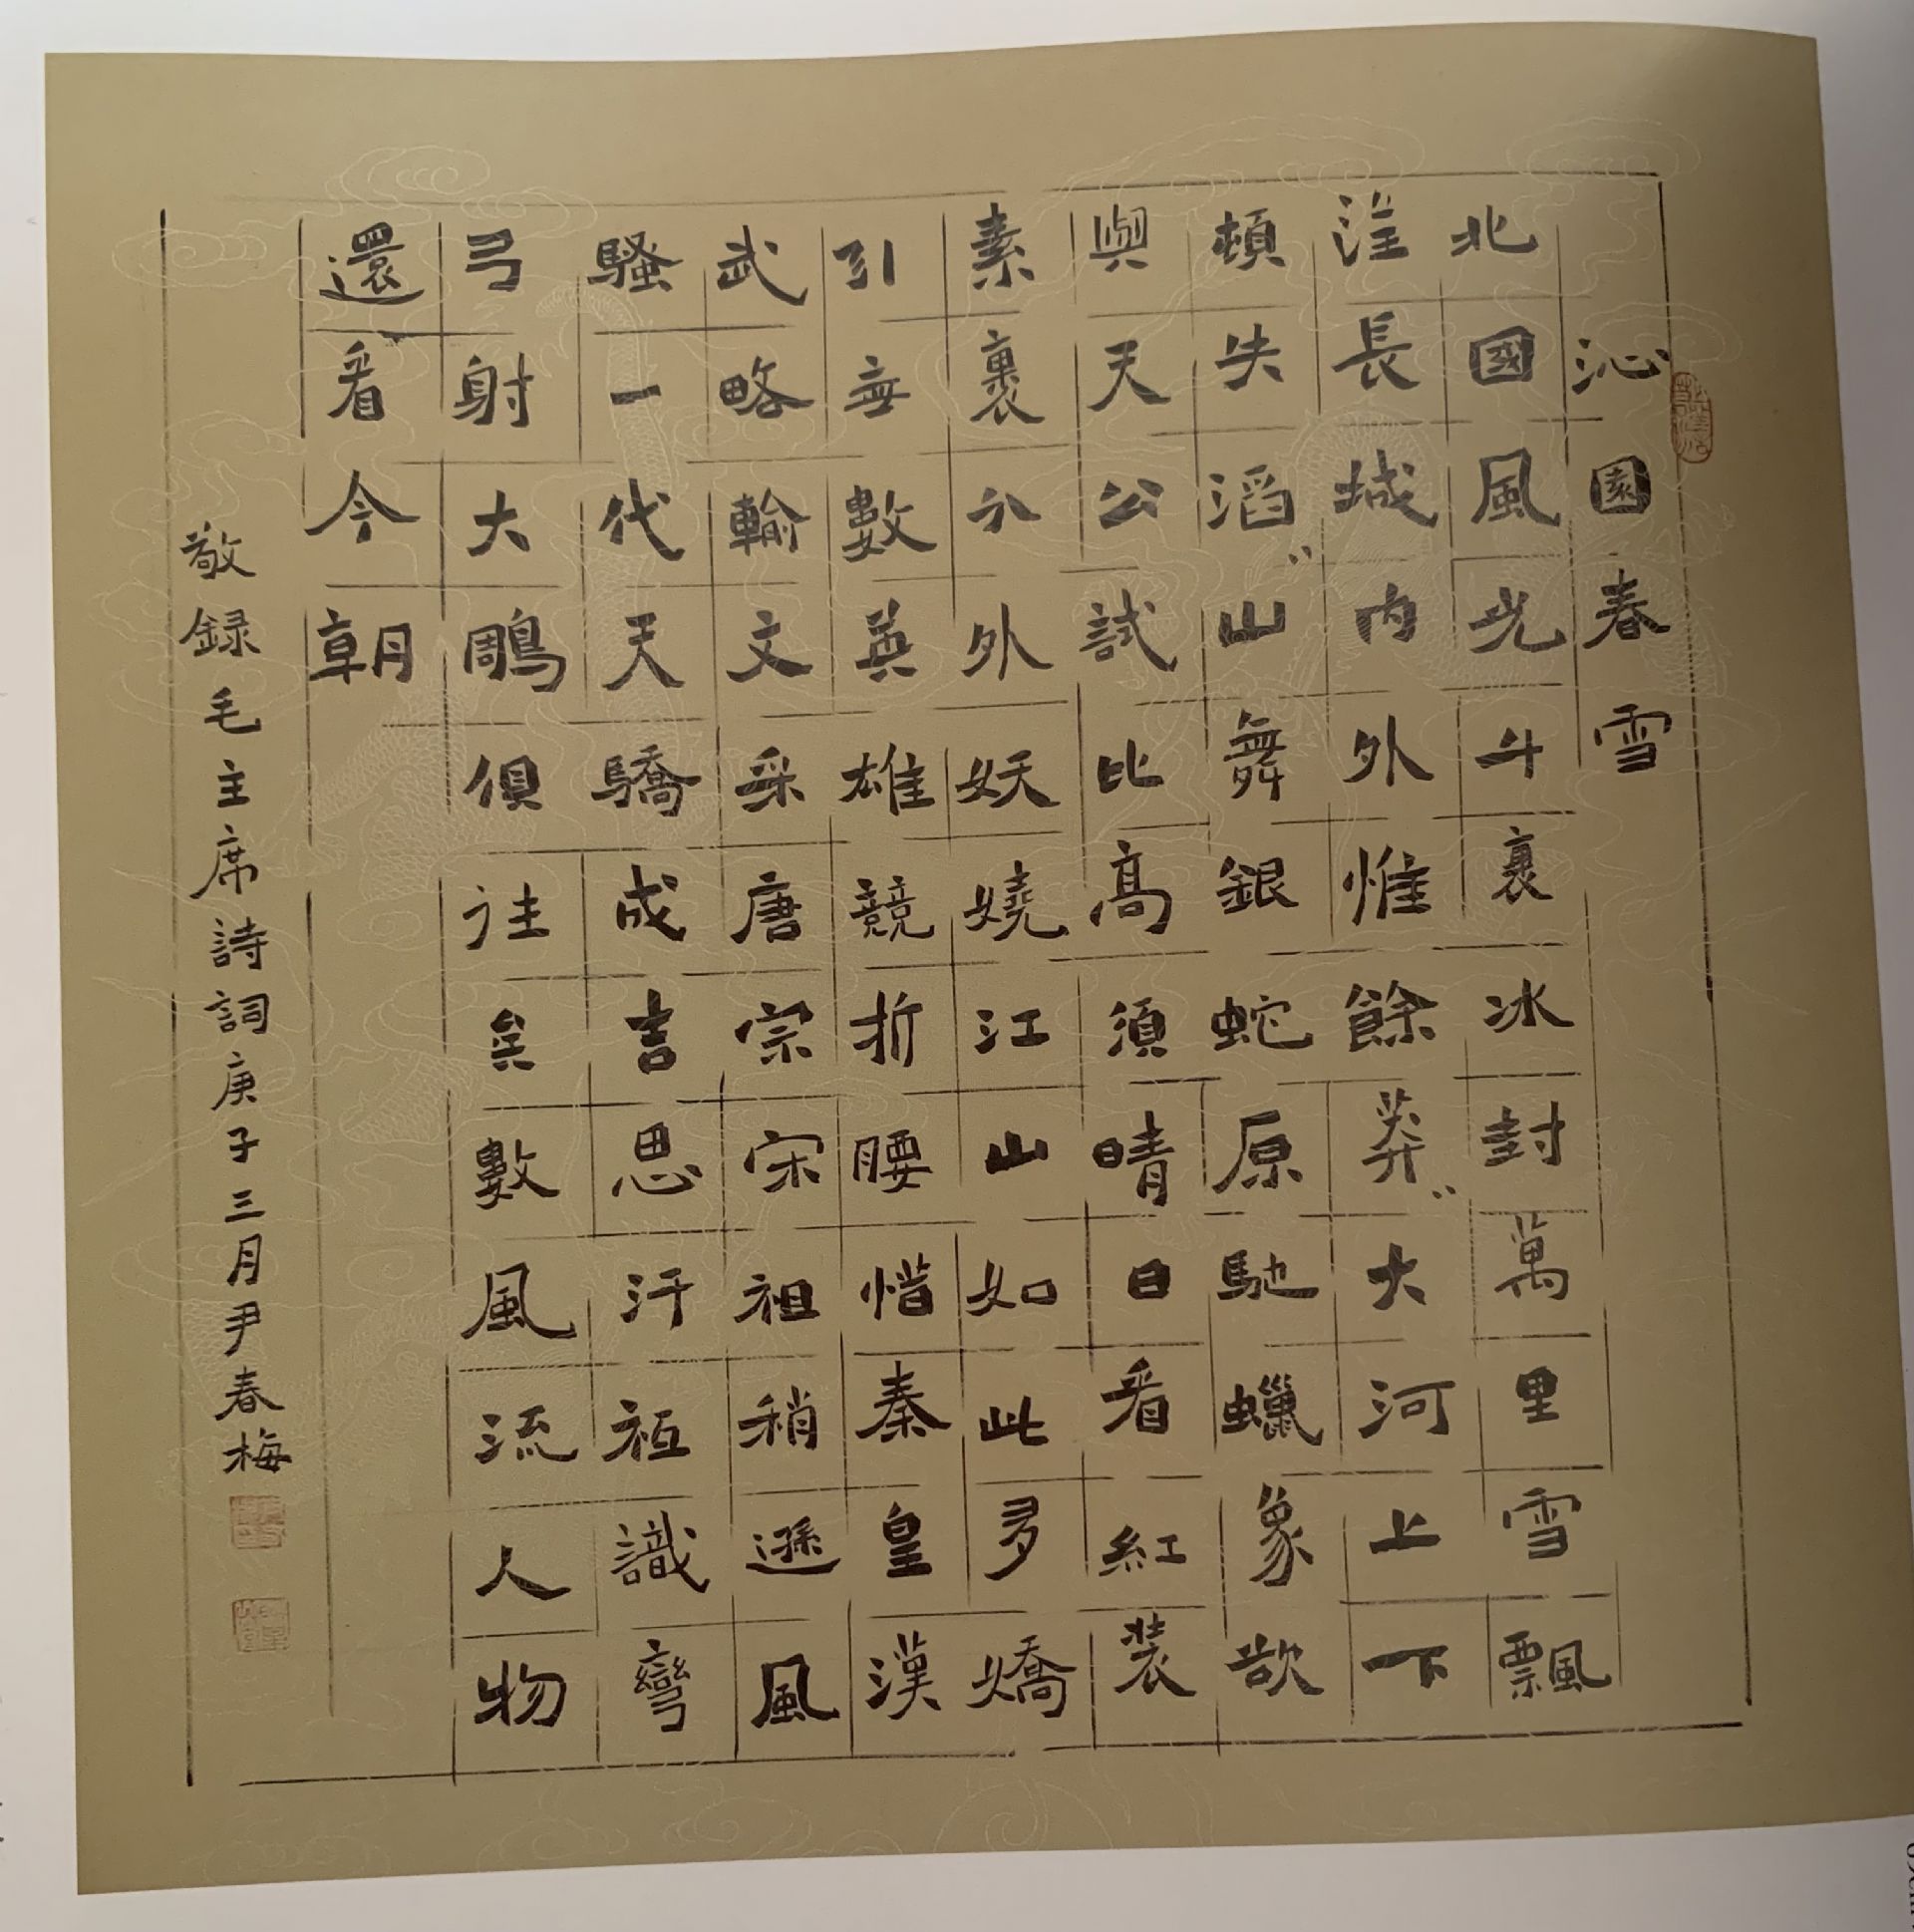 沁園春雪
北國風光千裏冰封萬里雪飄
望長城内外惟餘莽〻大河上下
頓失滔〻山舞銀蛇原馳蠟象欲
與天公試比高須晴日看紅裝
素裹分外妖嬈江山如此多嬌
引無數英雄競折腰惜秦皇漢
武略輸文采唐宗宋祖稍遜風
騷一代天驕成吉思汗祗識彎
弓射大鵰俱往矣數風流人物
還看今朝
敬録毛主席詩詞庚子三月尹春梅